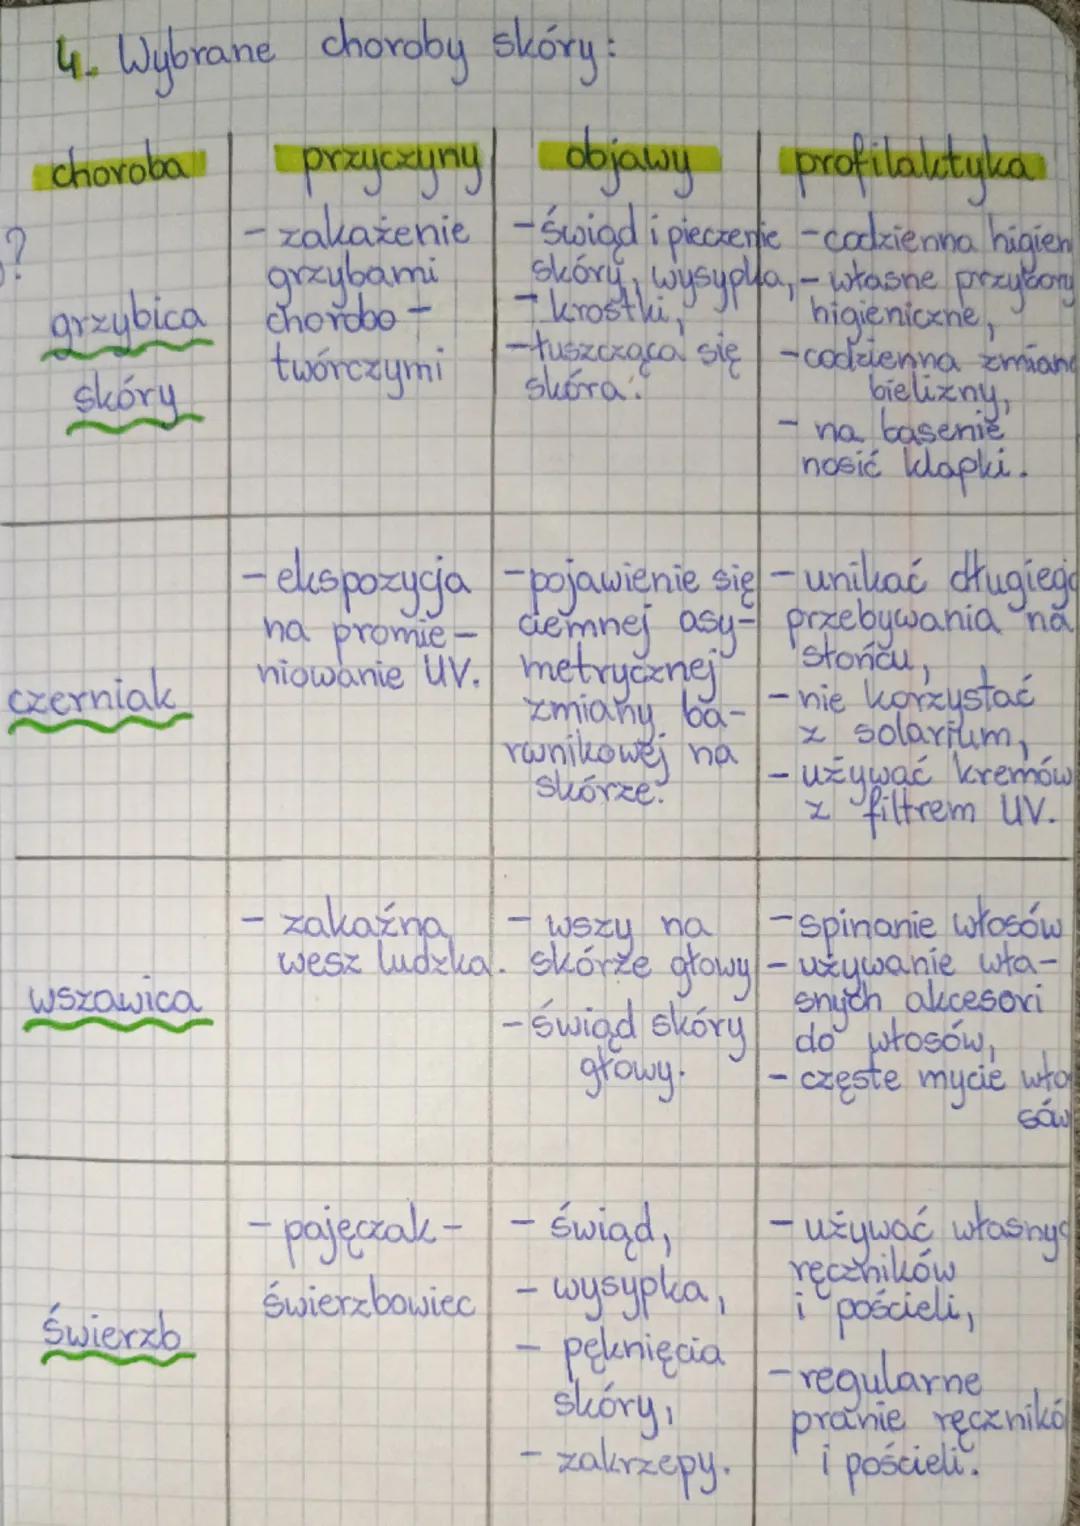 4. Wybrane choroby skóry:
choroba
przyczyny
objawy
profilaktyka
?
grzybica
skóry
- zakażenie
grzybami
chorobo-
twórczymi
- świąd i pieczenie
skóry, wysypka,
- krostki,
- łuszcząca się
skóra.
- codzienna higien
- własne przybory
higieniczne,
- codzienna zmiana
bielizny,
- na basenie
nosić klapki.
czerniak
- ekspozycja
na promie-
niowanie UV.
- pojawienie się
ciemnej asy-
metrycznej
zmiany ba-
rwnikowej na
skórze.
- unikać długiego
przebywania na
słońcu,
- nie korzystać
z solarium,
- używać kremów
z filtrem UV.
wszawica
- zakaźna
wesz ludzka.
- wszy na
skórze głowy
- świąd skóry
głowy.
- spinanie włosów
- używanie wła-
snych akcesori
do włosów,
- częste mycie wło
sów
świerzb
- pajęczak -
świerzbowiec
- świąd,
- wysypka,
- pęknięcia
skóry,
- zakrzepy.
- używać własnyc
ręczników
i pościeli,
- regularne
pranie ręcznikó
i pościeli.